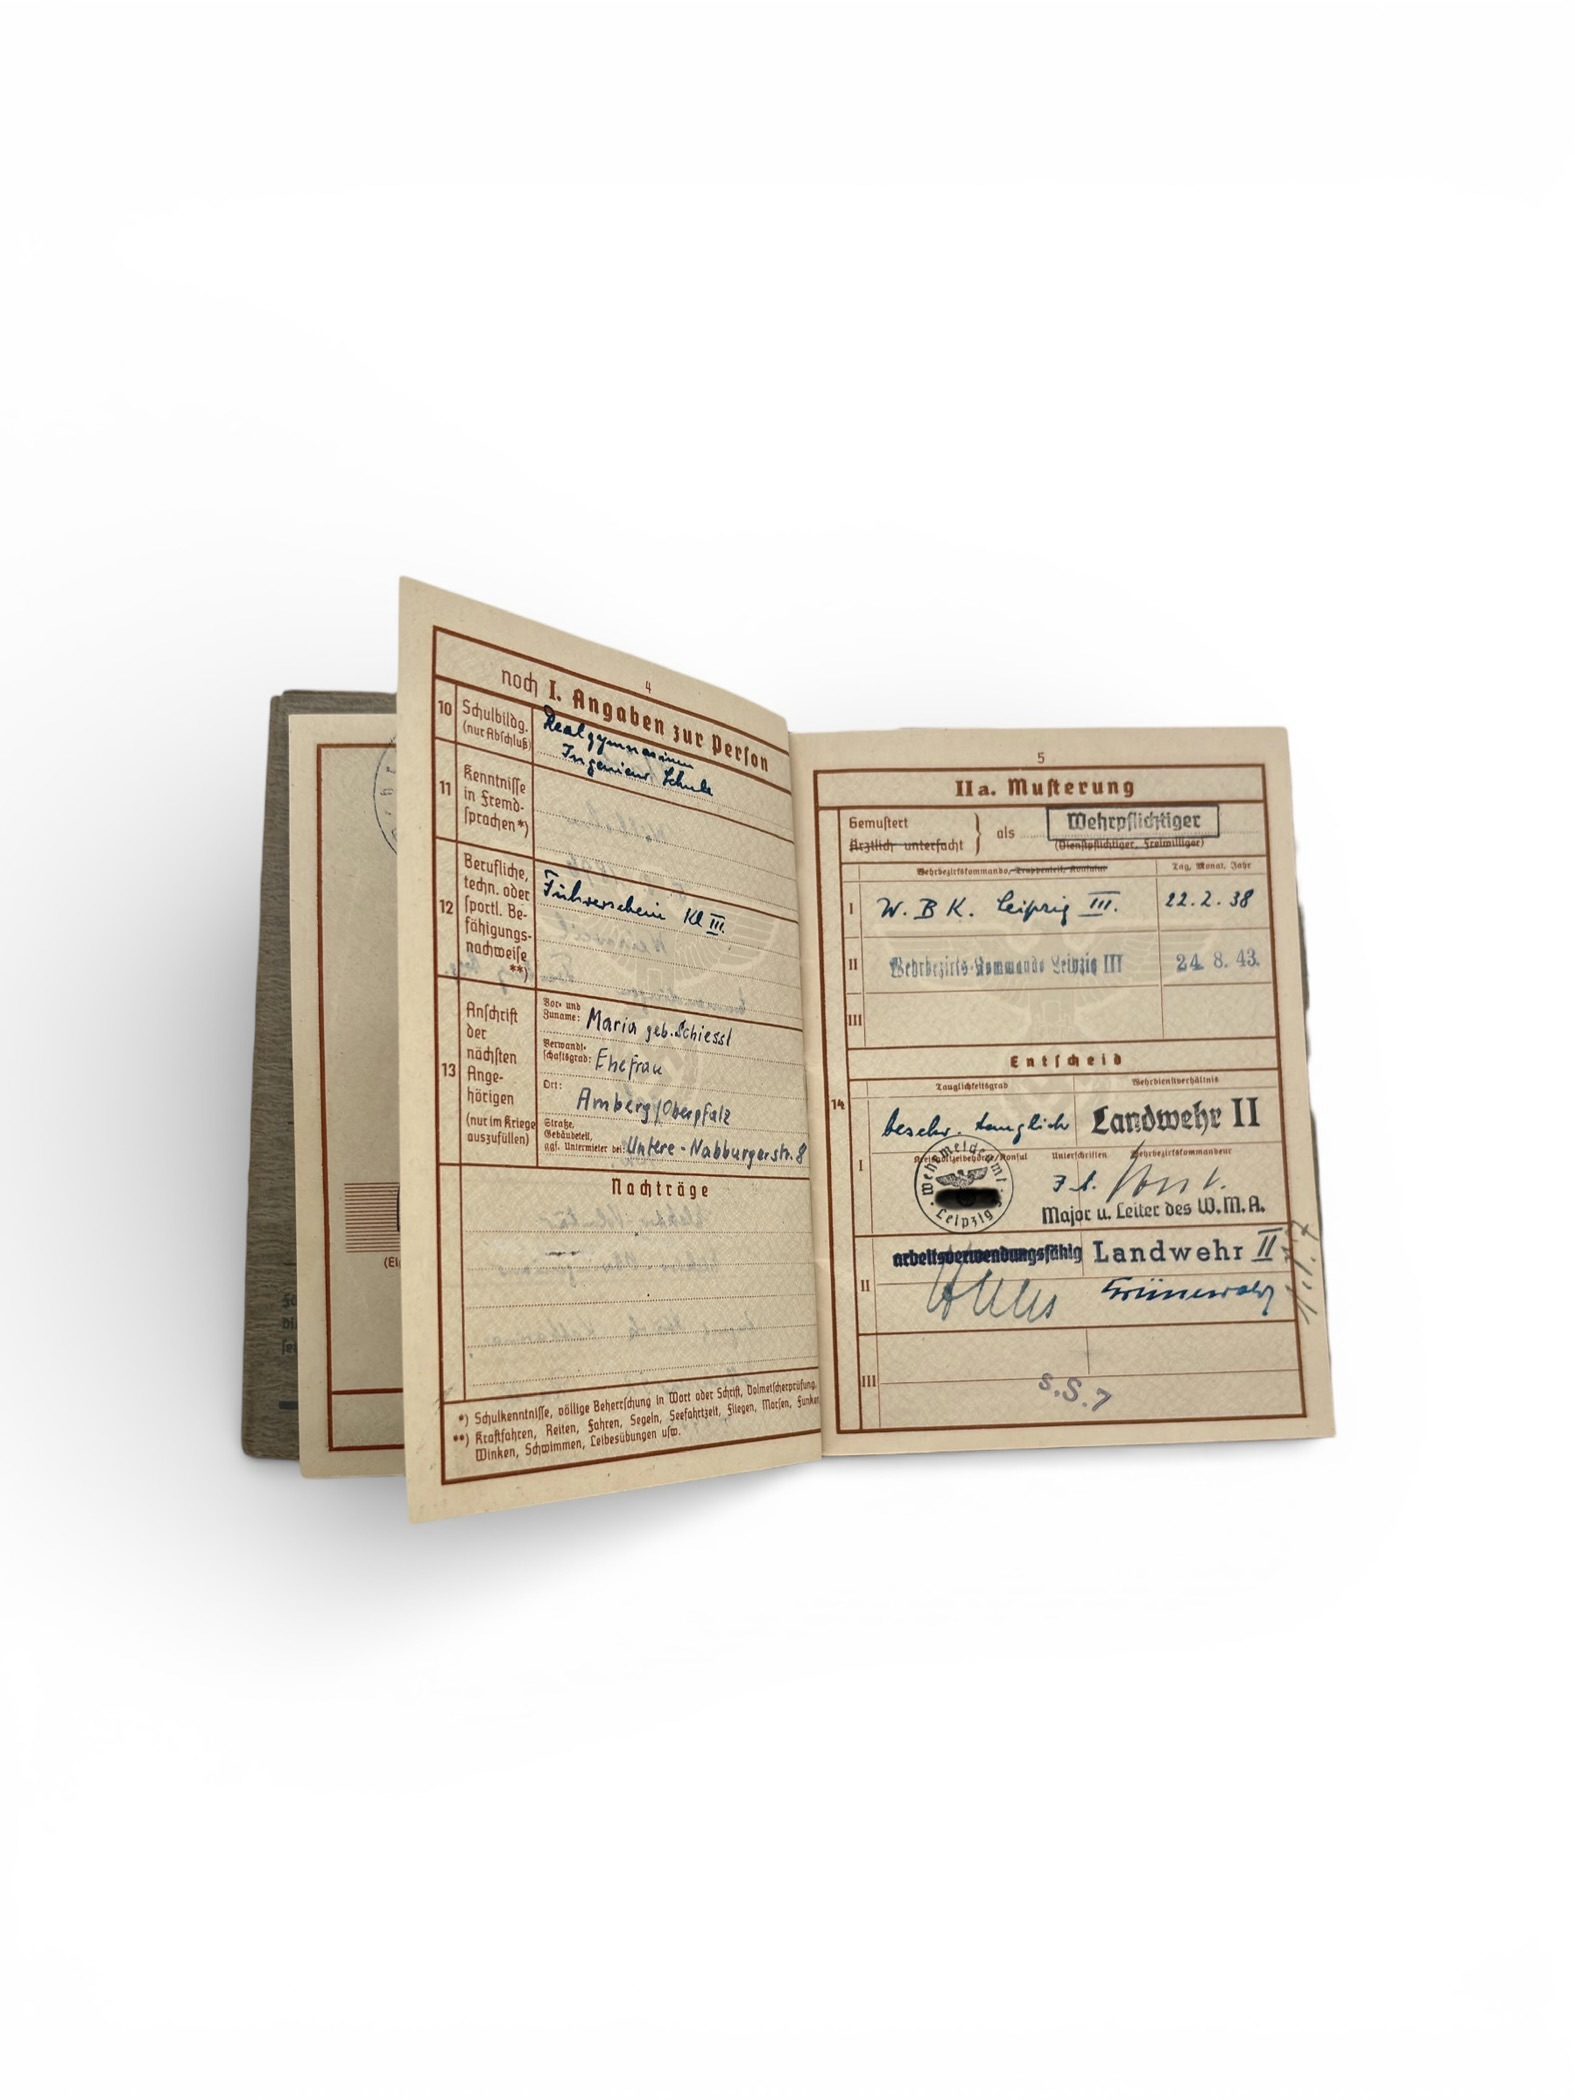 4
noch I. Angaben zur Person
10 Schulbildg. (nur Abschluß)
Realgymnasium
Ingenieur Schule
11 Kenntnisse in Fremd-
sprachen*)
12 Berufliche,
techn. oder
sportl. Be-
fähigungs-
nachweise
**)
Führerschein Kl III.
13 Anschrift
der
nächsten
Ange-
hörigen
(nur im Kriege
auszufüllen)
Vor- und
Zuname: Maria geb. Schiessl
Verwandt-
schaftsgrad: Ehefrau
Ort: Amberg/Oberpfalz
Straße,
Gebäudeteil,
ggf. Untermieter bei: Untere-Nabburgerstr. 8
Nachträge
*) Schulkenntnisse, völlige Beherrschung in Wort oder Schrift, Dolmetscherprüfung.
**) Kraftfahren, Reiten, Fahren, Segeln, Seefahrtzeit, Fliegen, Morsen, Funken
Winken, Schwimmen, Leibesübungen usw.
5
IIa. Musterung
Gemustert
Ärztlich untersucht
als Wehrpflichtiger
(Dienstpflichtiger, Freiwilliger)
Wehrbezirkskommando, Truppenteil, Konsulat
Tag, Monat, Jahr
I W. B K. Leipzig III. 22.2.38
II Wehrbezirks-Kommando Leipzig III 24. 8. 43.
III
Entscheid
14
Tauglichkeitsgrad Wehrdienstverhältnis
I beschr. tauglich Landwehr II
Kreispolizeibehörde/Konsul Unterschriften Wehrbezirkskommandeur
Wehrmeldeamt
Leipzig
Major u. Leiter des W.M.A.
II arbeitsverwendungsfähig Landwehr II
Grünewald
III
s.S.7